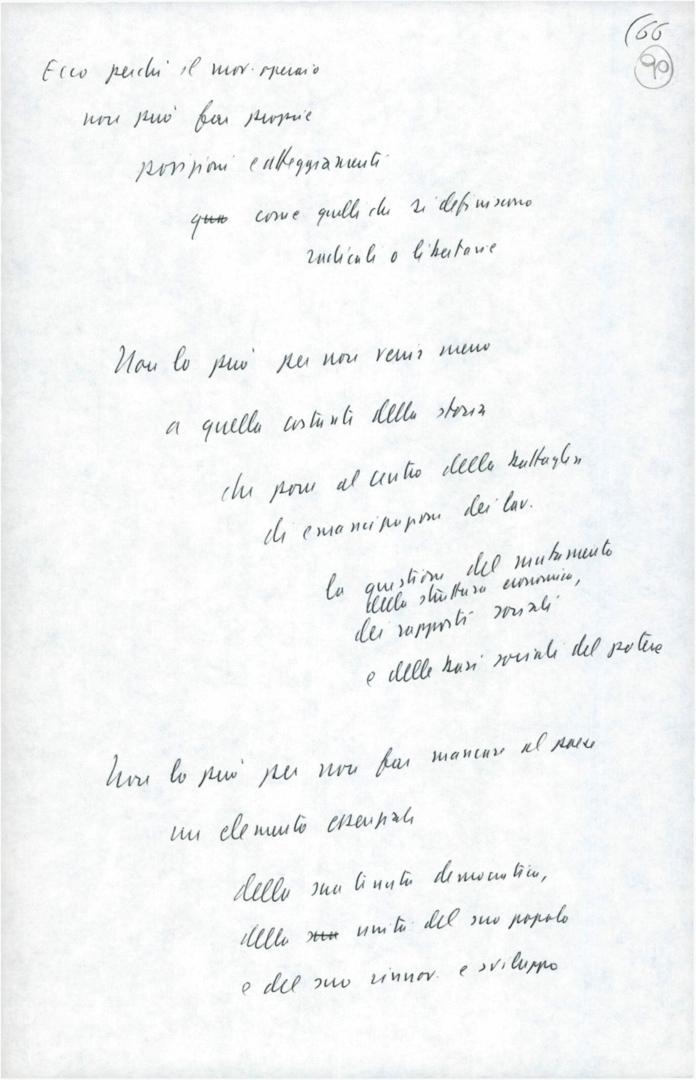 166
90
Ecco perché il mov. operaio
non può far proprie
posizioni e atteggiamenti
qun come quelli che si definiscono
radicali o libertarie
Non lo può per non venir meno
a quella costante della storia
che pone al centro della battaglia
di emancipazione dei lav.
la questione del mutamento
della struttura economica,
dei rapporti sociali
e delle basi sociali del potere
Non lo può per non far mancare al paese
un elemento essenziale
della sua tenuta democratica,
della sua unità del suo popolo
e del suo rinnov. e sviluppo